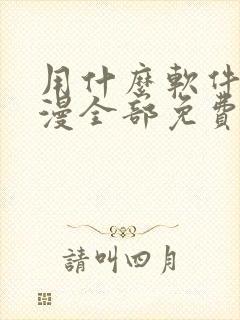 用什麼軟件
漫全部免費
請叫四月